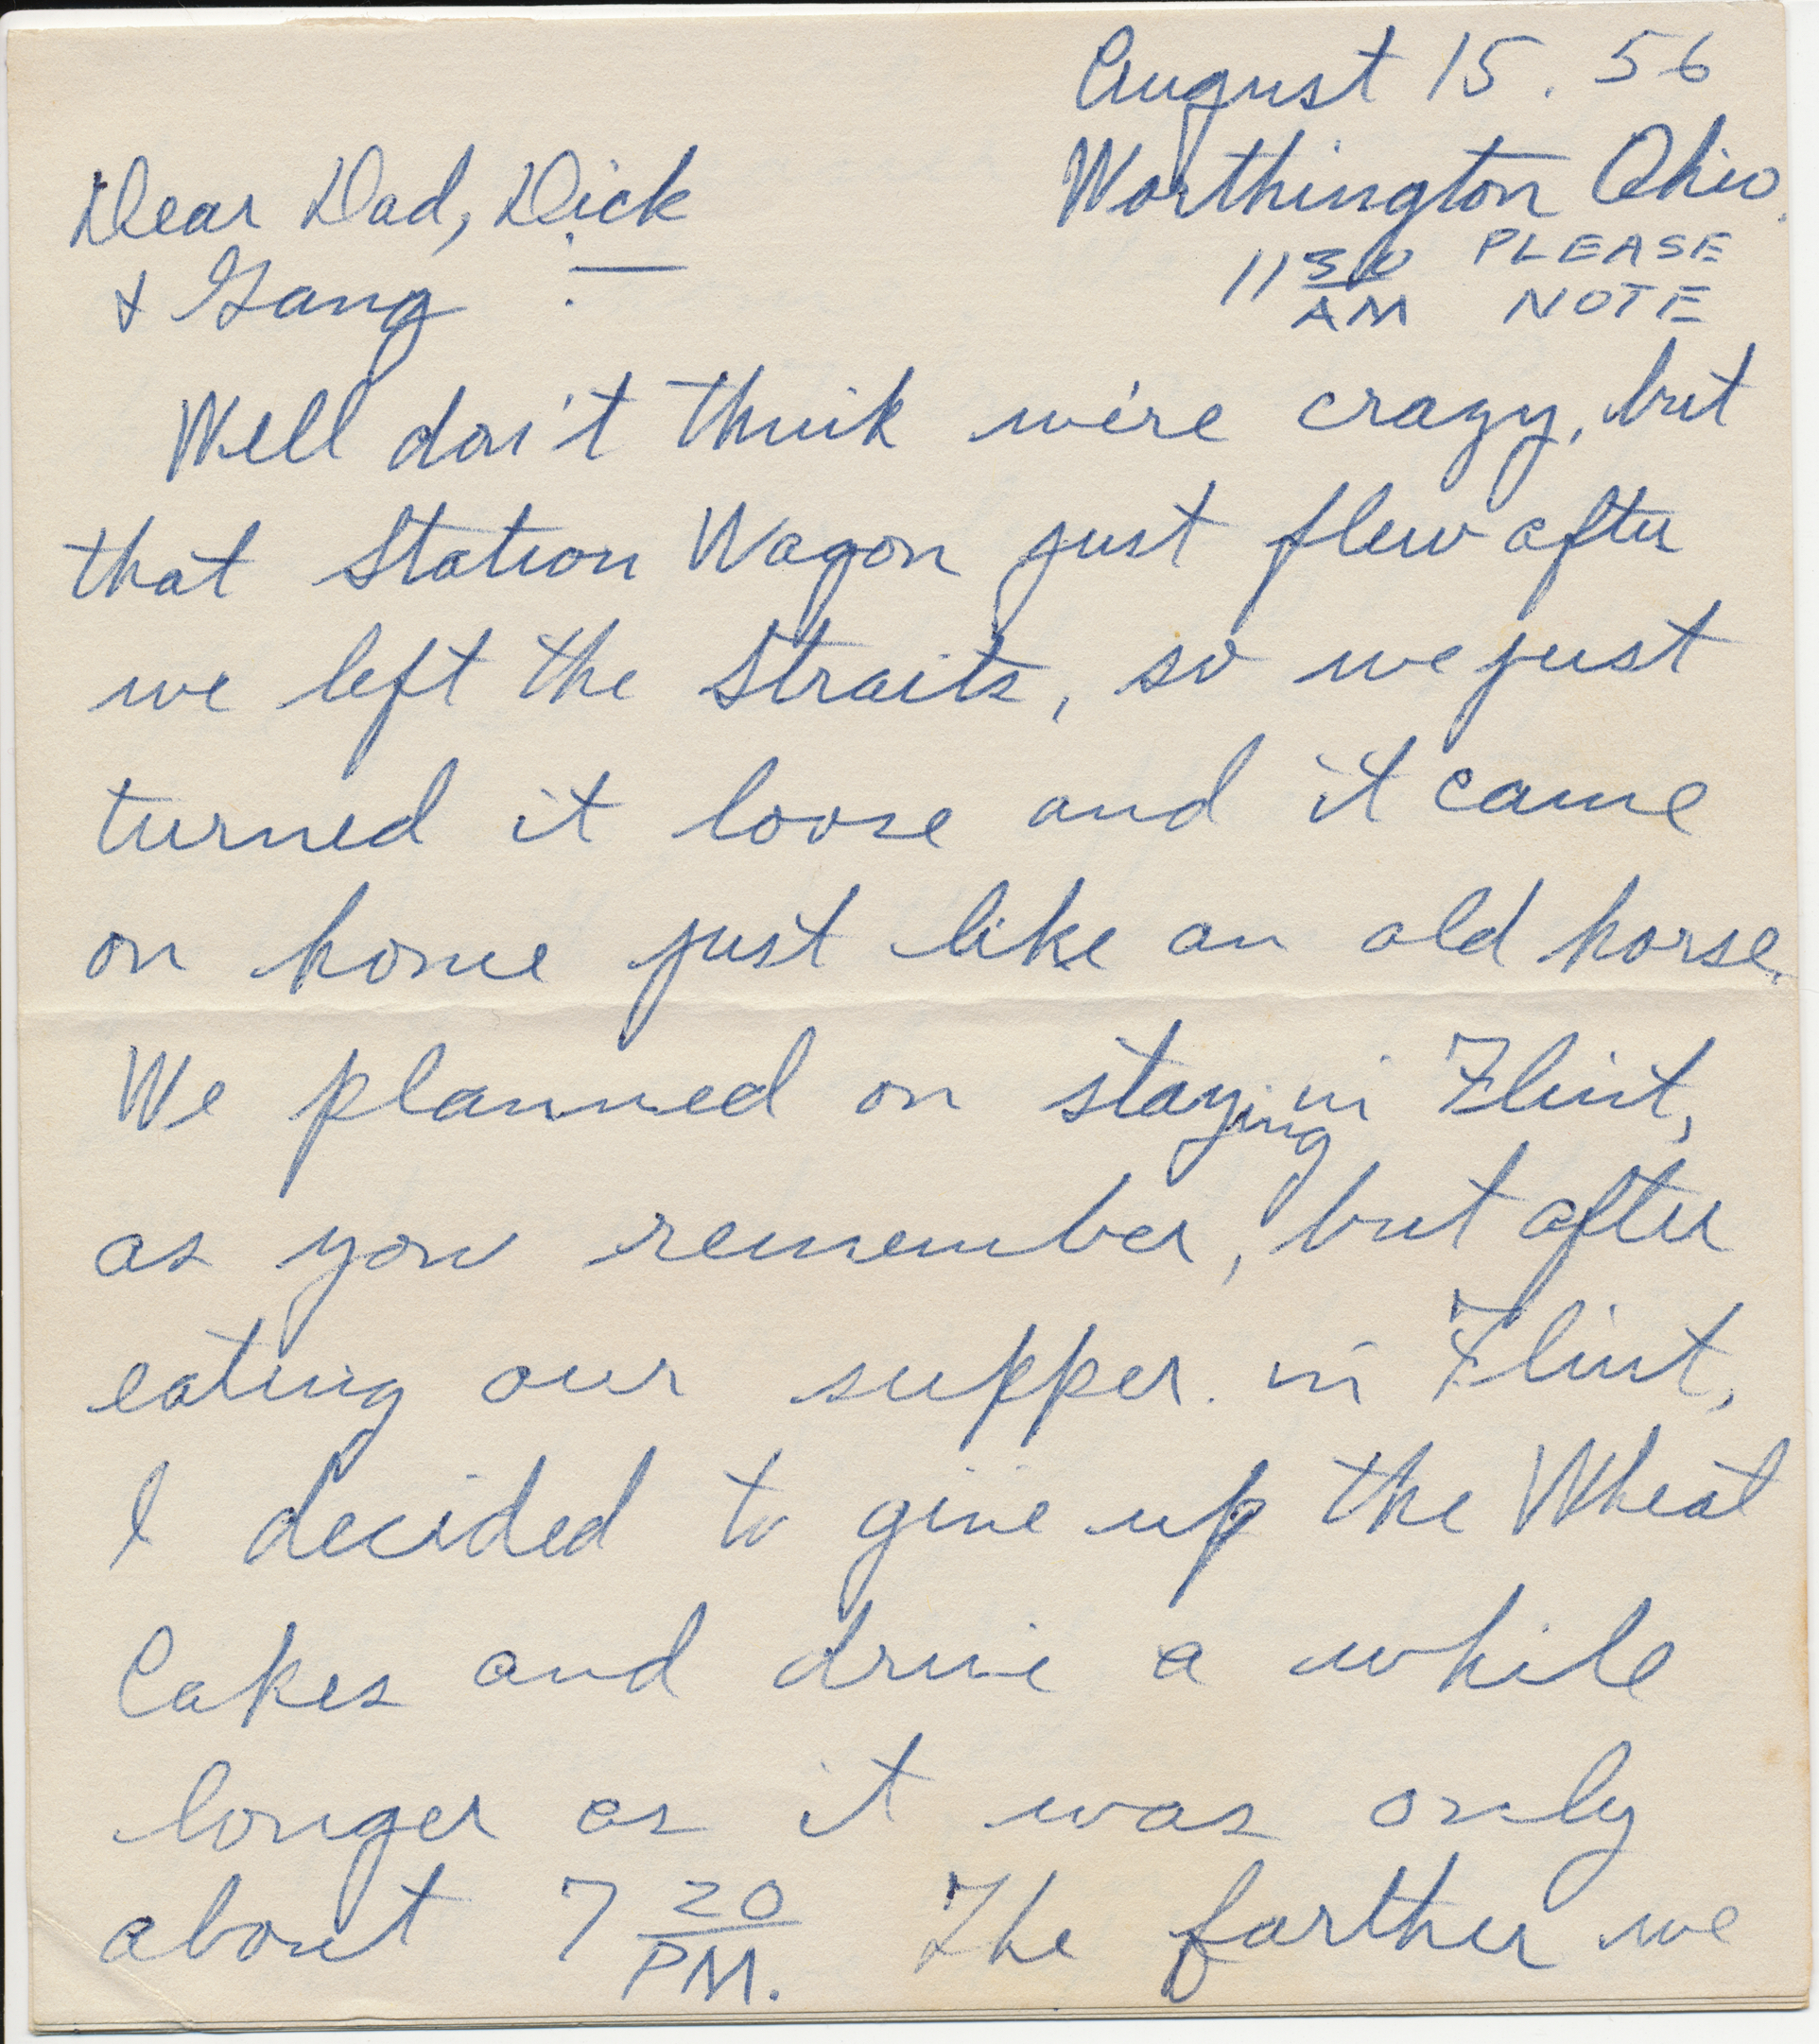 August 15. 56
Worthington Ohio.
11 30 AM PLEASE NOTE
Dear Dad, Dick
& Gang :—
Well don't think we're crazy, but
that Station Wagon just flew after
we left the Straits, so we just
turned it loose and it came
on home just like an old horse.
We planned on staying in Flint,
as you remember, but after
eating our supper in Flint,
I decided to give up the Wheat
Cakes and drive a while
longer as it was only
about 7 20 PM. The farther we